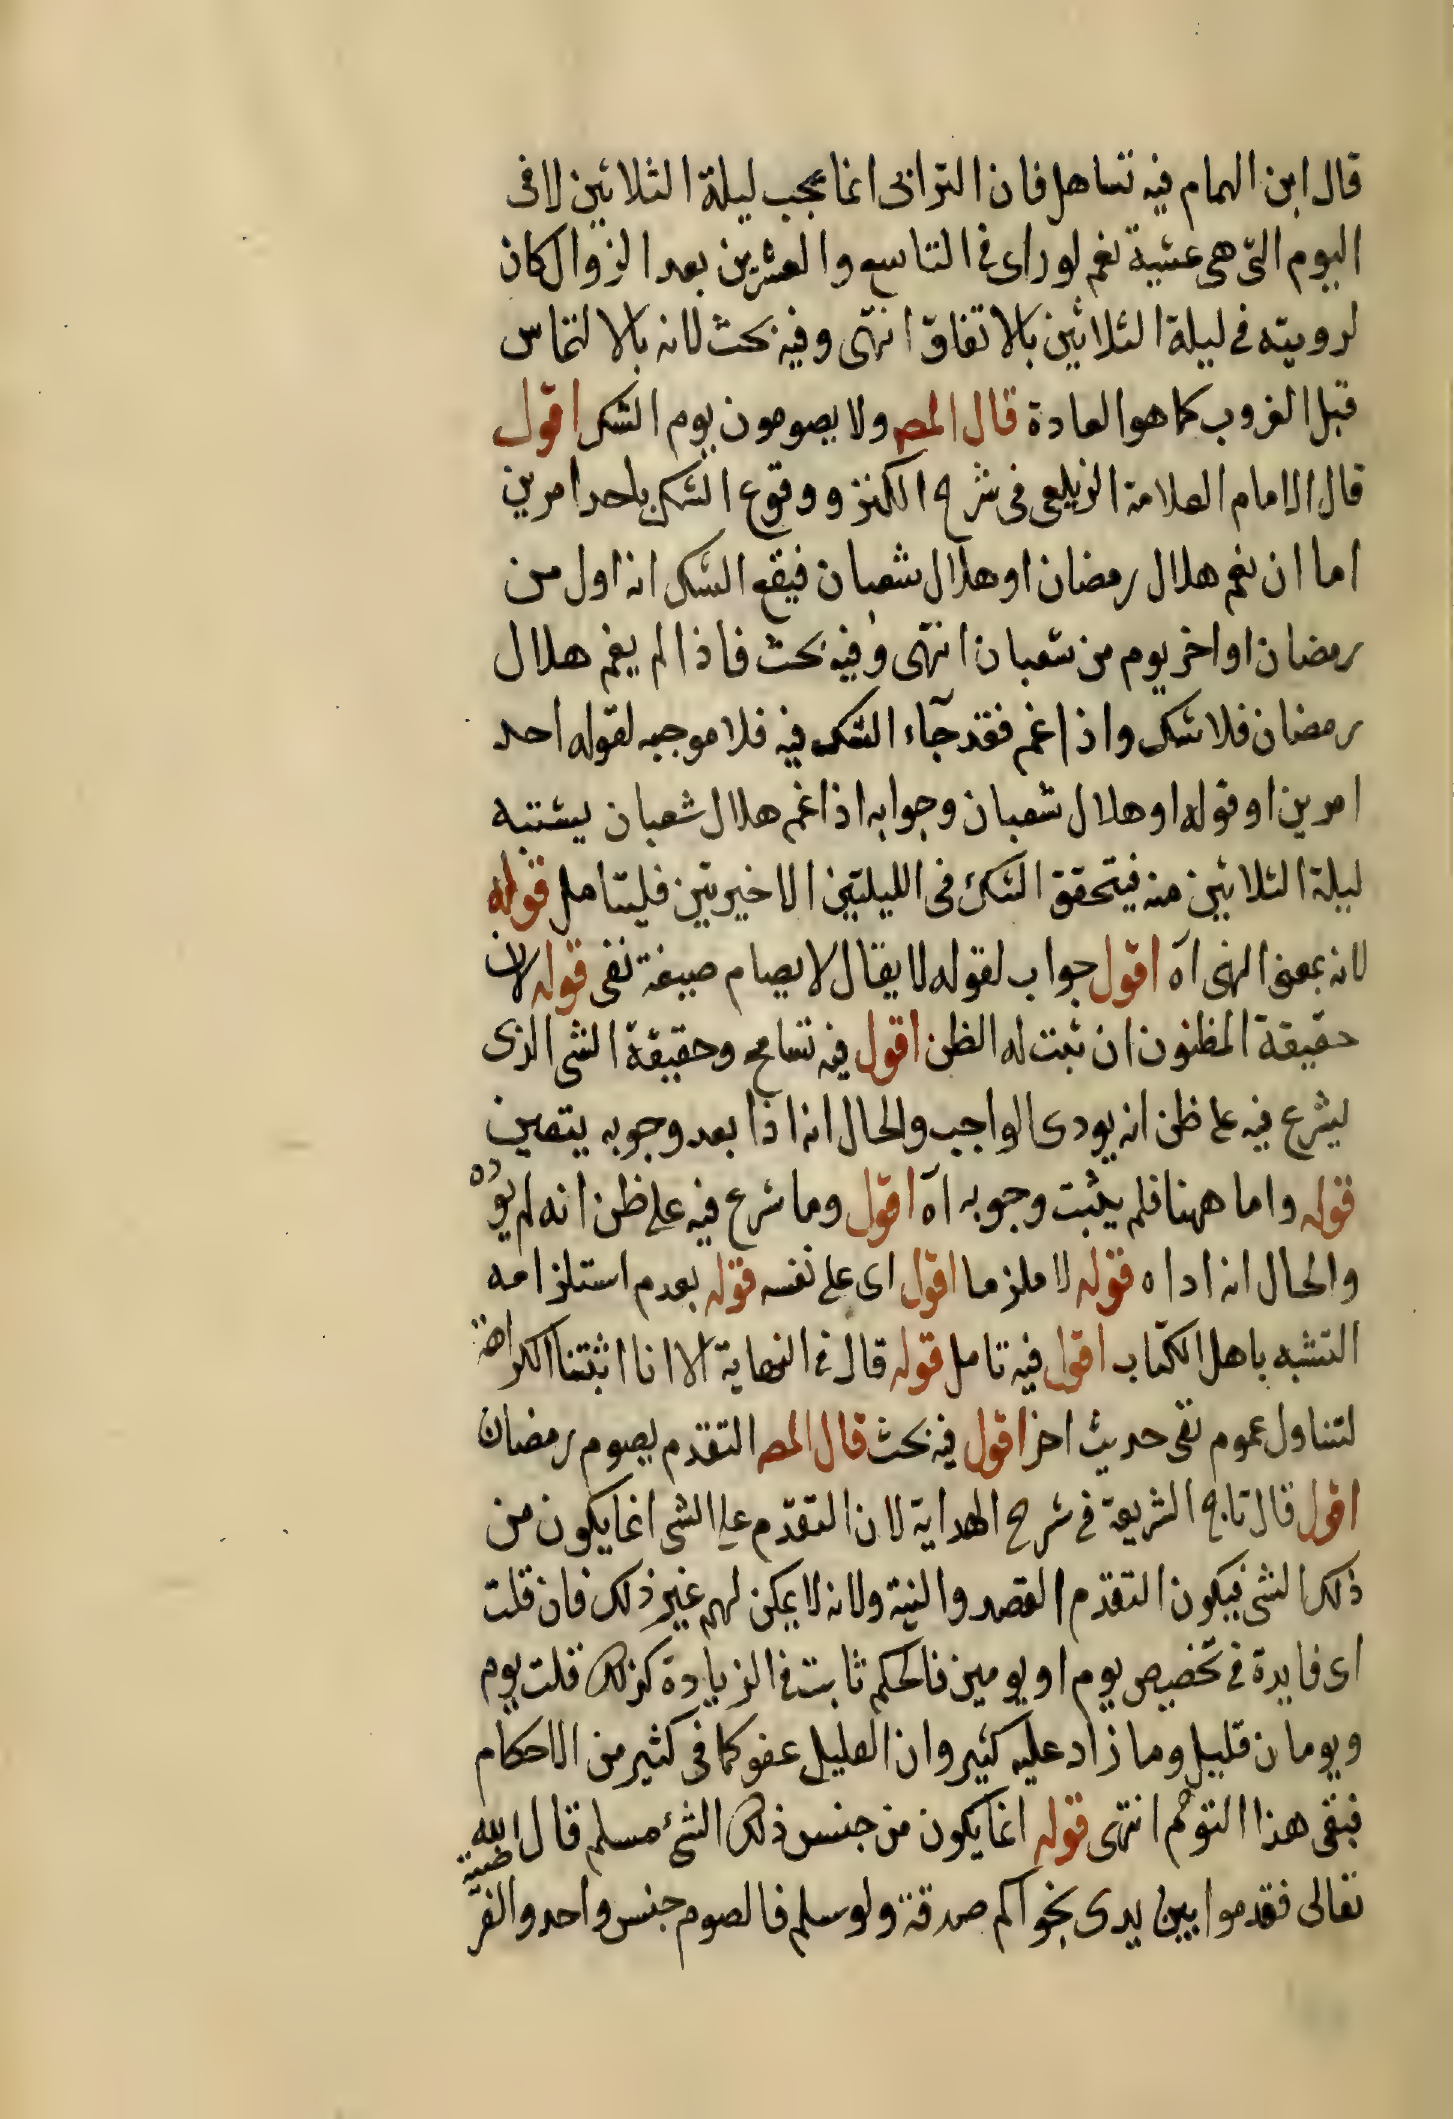 قال ابن الهمام فيه تساهل فان الترائى انما يجب ليلة الثلاثين لا فى
اليوم التى هى عشية نعم لو راى فى التاسع والعشرين بعد الزوال كان
لرويته فى ليلة الثلاثين بالاتفاق انتهى وفيه بحث لانه بالالتماس
قبل الغروب كما هو العادة قال المص ولا يصومون يوم الشك اقول
قال الامام العلامة الزيلعى فى شرح الكنز ووقوع الشك باحد امرين
اما ان غم هلال رمضان او هلال شعبان فيقع الشك انه اول من
رمضان او اخر يوم من شعبان انتهى وفيه بحث فاذا لم يغم هلال
رمضان فلا شك واذا غم فقد جآء الشك فيه فلا موجبه لقوله احد
امرين او قوله او هلال شعبان وجوابه اذا غم هلال شعبان يشتبه
ليلة الثلاثين منه فيتحقق الشك فى الليلتين الاخيرتين فليتامل قوله
لانه بمعنى النهى آه اقول جواب لقوله لا يقال لا يصام صيغة نفى قوله لان
حقيقة المظنون ان ثبت له الظن اقول فيه تسامح وحقيقة الشى الذى
يشرع فيه على ظن انه يودى الواجب والحال انه اذا بعد وجوبه يتعين
قوله واما ههنا فلم يثبت وجوبه آه اقول وما شرع فيه على ظن انه لم يؤده
والحال انه اداه قوله لا ملزما اقول اى على نفسه قوله بعدم استلزامه
التشبه باهل الكتاب اقول فيه تامل قوله قال فى النهاية الا انا اثبتنا الكراهة
لتناول عموم نفى حديث اخر اقول فيه بحث قال المص التقدم بصوم رمضان
اقول قال تاج الشريعة فى شرح الهداية لان التقدم على الشى انما يكون من
ذلك الشى فيكون التقدم القصد والنية ولانه لا يمكن لهم غير ذلك فان قلت
اى فايدة فى تخصيص يوم او يومين فالحكم ثابت فى الزيادة كذلك قلت يوم
ويومان قليل وما زاد عليه كثير وان القليل عفو كما فى كثير من الاحكام
فبقى هذا التوهم انتهى قوله انما يكون من جنس ذلك الشئ مسلم قال الله
تعالى فقدموا بين يدى نجواكم صدقة ولو سلم فالصوم جنس واحد والفرضية